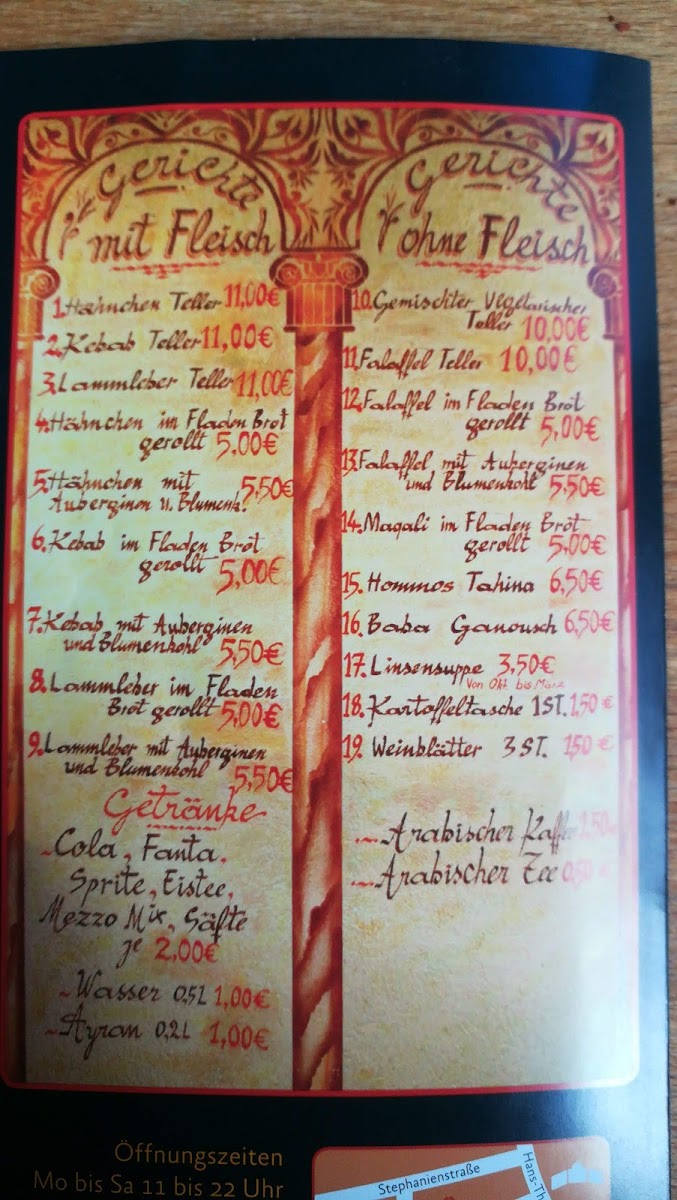 Gerichte
mit Fleisch
1. Hähnchen Teller 11,00€
2. Kebab Teller 11,00€
3. Lammleber Teller 11,00€
4. Hähnchen im Fladen Brot
gerollt 5,00€
5. Hähnchen mit 5,50€
Auberginen u. Blumenk.
6. Kebab im Fladen Brot
gerollt 5,00€
7. Kebab mit Auberginen
und Blumenkohl 5,50€
8. Lammleber im Fladen
Brot gerollt 5,00€
9. Lammleber mit Auberginen
und Blumenkohl 5,50€
Getränke
Cola, Fanta,
Sprite, Eistee,
Mezzo Mix, Säfte
je 2,00€
Wasser 0,5L 1,00€
Ayran 0,2L 1,00€
Gerichte
ohne Fleisch
10. Gemischter Vegetarischer
Teller 10,00€
11. Falaffel Teller 10,00€
12. Falaffel im Fladen Brot
gerollt 5,00€
13. Falaffel mit Auberginen
und Blumenkohl 5,50€
14. Maqali im Fladen Brot
gerollt 5,00€
15. Hommos Tahina 6,50€
16. Baba Ganousch 6,50€
17. Linsensuppe 3,50€
von Okt bis März
18. Kartoffeltasche 1ST. 1,50€
19. Weinblätter 3 ST. 1,50€
Arabischer Kaffee 1,50
Arabischer Tee 0,50€
Öffnungszeiten
Mo bis Sa 11 bis 22 Uhr
Stephanienstraße
Hans-Th